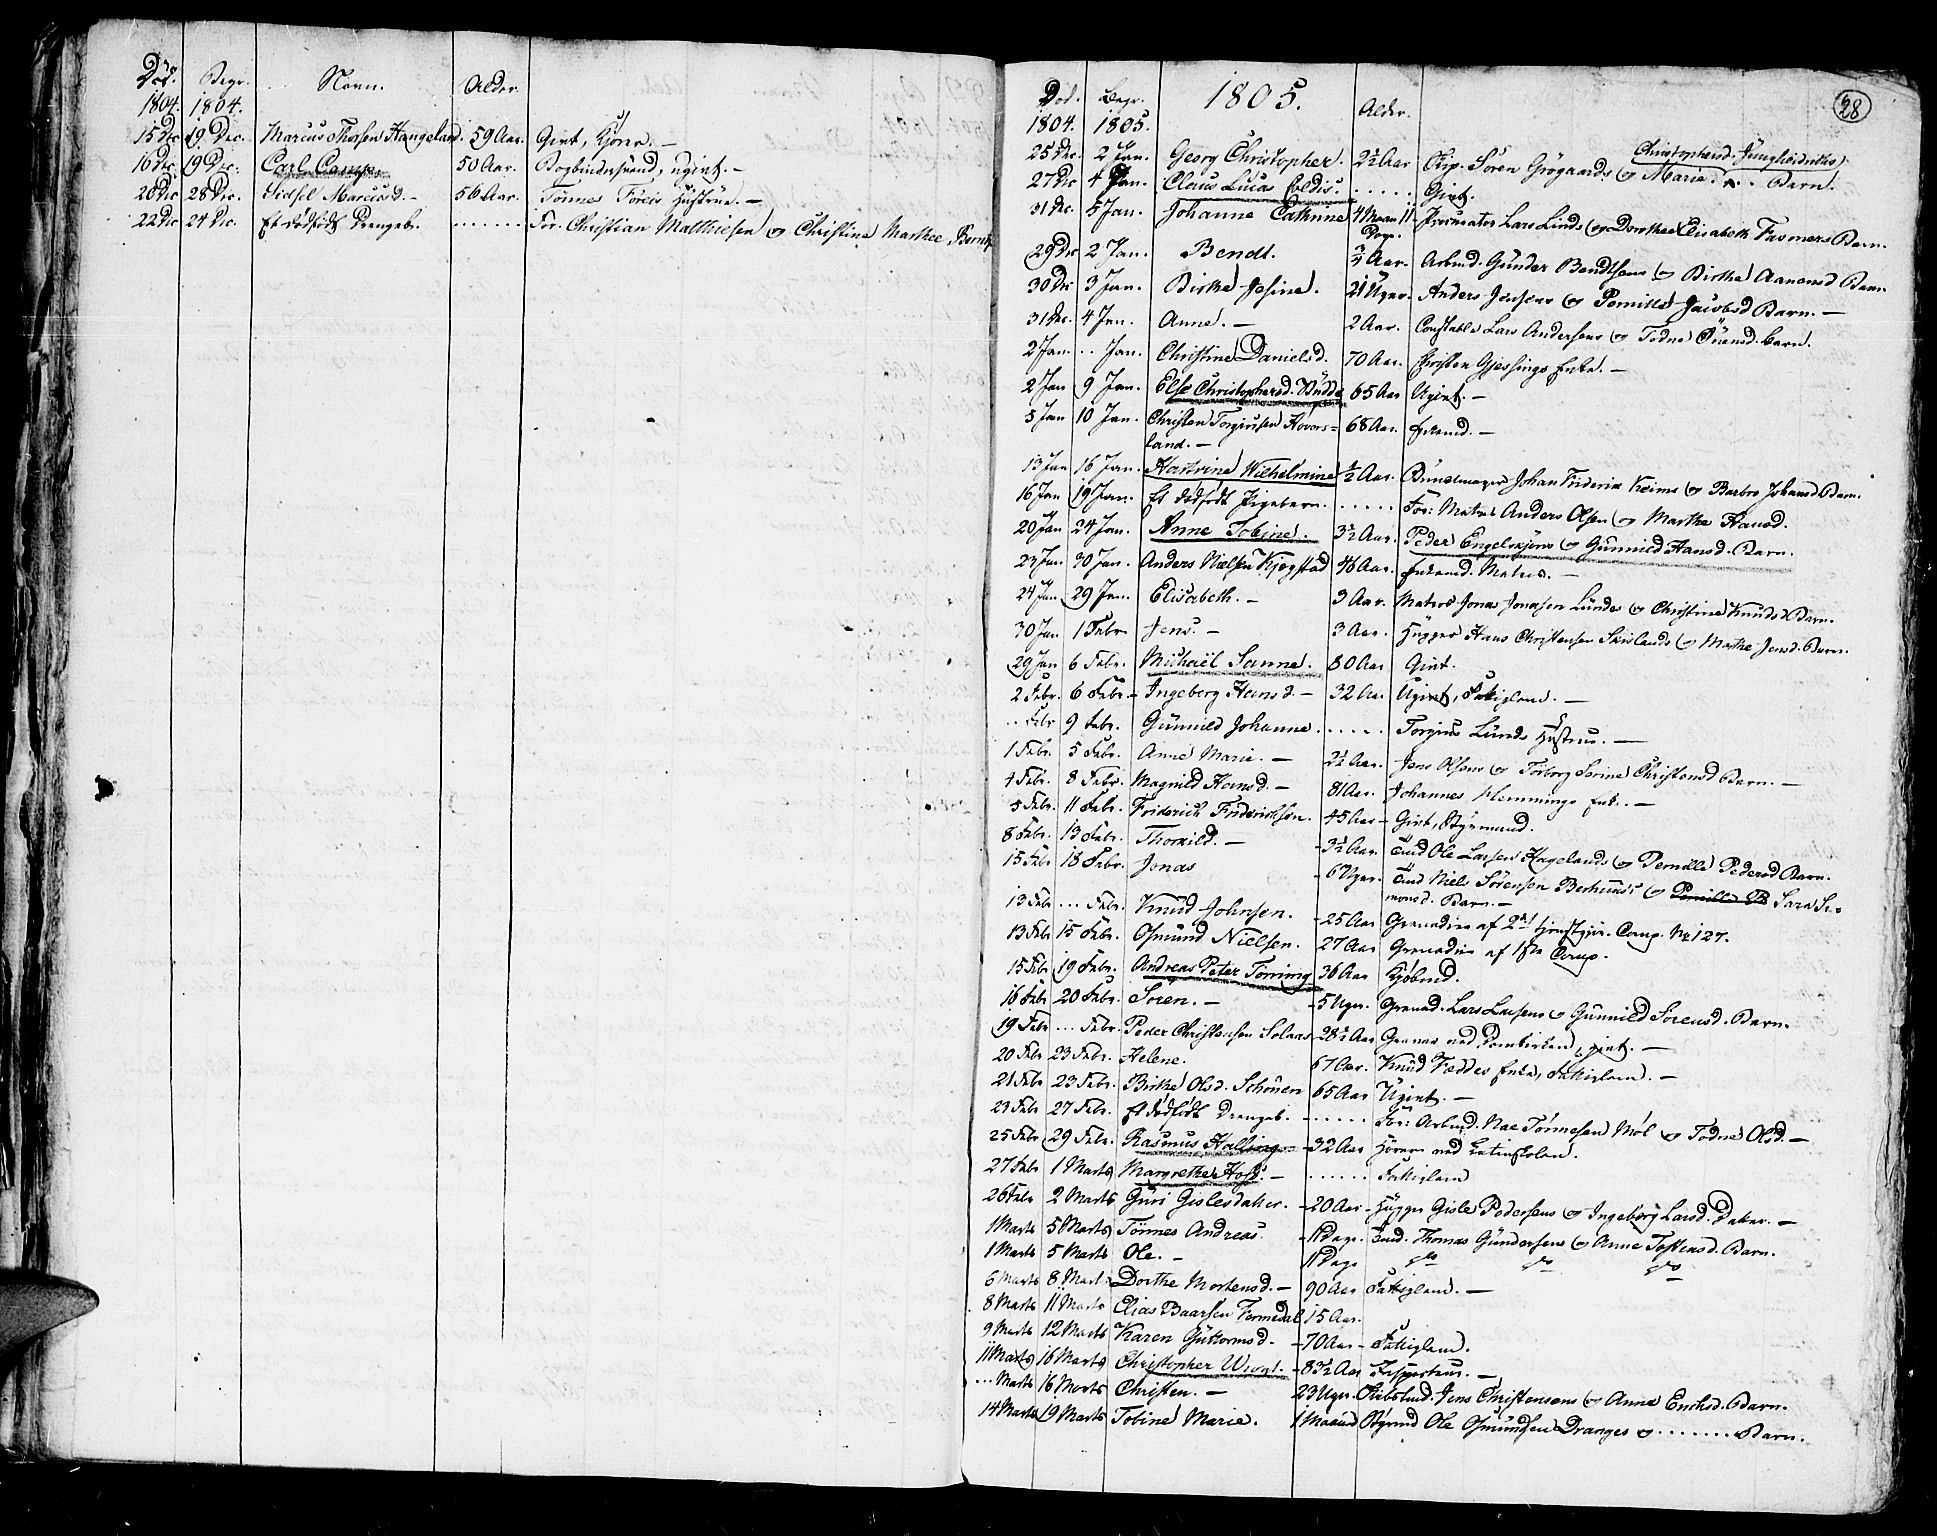 Död. Begr. Navn. Alder.
1804. 1804.
15 Dec 19 Dec. Marcus Thorsen Hangeland. 59 Aar. Givt,
16 Dec 19 Dec. Carl Camp. 50 Aar. Bogbindersvend, ugivt. –
20 Dec 28 Dec. Sidsel Marcusd. – 56 Aar. Tönnes Hustrue. –
22 Dec 24 Dec. Et dödfödt Drengeb. ...... For. Christian Matthiesen og Christine Marthe
28
Död. Begr. 1805. Alder.
1804. 1805.
Christophersd.
25 Dec. 2 Jan. Georg Christopher. 2½ Aar Sören Grögaards og Marie Barn.
27 Dec 4 Jan. Claus Lucas ..... Givt.
31 Dec. 5 Jan. Johanne Cathrine 4 Maan 11 Procurator Lars Linds og Dorothea Elisabeth Fasmers Barn.
Dage.
29 Dec 2 Jan. Bendt. Aar. Arbmd. Gunder Bendtsens og Birthe Aanensd Barn
30 Dec 3 Jan. Birthe Josine. 21 Uger. Anders Jensens og Pernille Jacobsd Barn. –
31 Dec. 4 Jan. Anne. – 2 Aar. Constabl Lars Andersens og Todne Barn.
2 Jan. .. Jan. Christine Danielsd. 70 Aar. Christen Gjessings Enke. –
2 Jan 9 Jan. Else Christophersd. Budde 65 Aar Ugivt. –
5 Jan 10 Jan. Christen Torgiusen Hovors= 68 Aar. Enkemd. –
land. –
13 Jan 16 Jan. Kathrine Wilhelmine ½ Aar. Bundtmager Johan Friderik Keims og Barbro Johansd Barn.
16 Jan 19 Jan. Et dödfödt Pigebarn. ..... For: Matros Anders Olsen og Marthe Hansd.
20 Jan 24 Jan. Anne Tobine. 3½ Aar. Peder Engelskjöns og Gunnild Hansd. Barn.
23 Jan 30 Jan. Anders Nielsen Kjøgstad 46 Aar. Enkemd. Matros. –
24 Jan. 29 Jan. Elisabeth. – 3 Aar. Matros Jonas Jonasen Lundes og Christine Knudsd Barn.
30 Jan 1 Febr. Jens. – 3 Aar. Hugger Hans Christensen og Marthe Jensd. Barn.
29 Jan 6 Febr. Michaël Sanne. 80 Aar Givt.
2 Febr. 6 Febr. – Ingeborg Hansd. – 32 Aar. Ugivt, Fattiglem. –
.. Febr 9 Febr. Gunnild Johanne. ..... Torgius Lunds Hustrue. –
1 Febr. 5 Febr. Anne Marie. – 2½ Aar. Jens Olsens og Torborg Serine Christensd Barn. –
4 Febr. 8 Febr. Magnild Hansd. – 81 Aar. Johannes Flemmings Enke. –
5 Febr. 11 Febr. Friderich Friderichsen. 45 Aar – Givt, Styrmand.
8 Febr. 13 Febr. Thomild. – 3½ Aar. Ole Larsen Hagelands og Pernille Pedersd Barn.
15 Febr 18 Febr. Jonas 6 Uger. Niels Sörensen og Sara
Barn. –
13 Febr ... Febr. Knud Johnsen. 25 Aar Grenadier af 2det Comp. No 127.
13 Febr. 15 Febr. Osmund Nielsen. 27 Aar Grenadier af 1ste Comp.
15 Febr 19 Febr. Andreas Peter Törring 36 Aar Kjöbmd.
16 Febr 20 Febr. Sören. – 5 Uger. Grenad. Lars Larsens og Gunnild Sörensd. Barn.
19 Febr ... Febr. Peder Christensen Solaas 28½ Aar givt. –
20 Febr 23 Febr. Helene. 67 Aar. Knud Feddes Enke, Fattiglem. –
21 Febr 23 Febr. Birthe Olsd. Schönen 65 Aar Ugivt. –
23 Febr 27 Febr. Et dödfödt Drengeb. ..... For: Arbmd. Aae Tönnesen Møl og Todne Olsd. –
25 Febr 29 Febr. Rasmus Halling – 32 Aar Hörer ved Latinskolen.
27 Febr 1 Marts Margrethe Holst. – ..... Fattiglem
26 Febr 2 Marts Guri Gislesdatter. – 20 Aar – Hugger Gisle Pedersens og Ingeborg Larsd. Datter. –
1 Marts 5 Marts Tönnes Andreas. Dage. Thomas Gundersens og Anne Tostensd. Barn.
1 Marts 5 Marts Ole. – Dage
6 Marts 8 Marts Dorthe Mortensd. – 90 Aar Fattiglem. –
8 Marts 11 Marts Elias Baarsen 15 Aar.
9 Marts 12 Marts Karen Guttormsd. – 70 Aar – Fattiglem.
11 Marts 16 Marts Christopher – 83½ Aar Inspecteur. –
... Marts 16 Marts Christen. – 23 Uger. Jens Christensens og Anne Barn.
14 Marts 19 Marts Tobine Marie. 1 Maaned Styrmd Ole Osmundsen Dranges og ....... Barn.